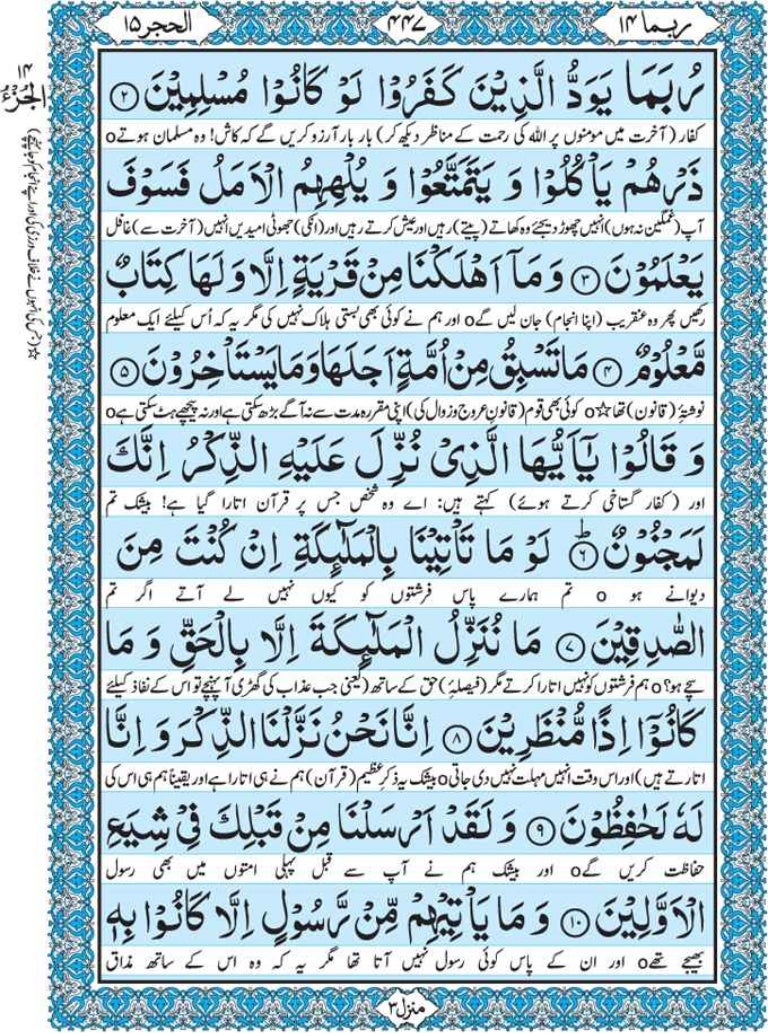 ربما ۱۴
۴۴۷
الحجر ۱۵
۱۴
الجزء
رُبَمَا يَوَدُّ الَّذِيْنَ كَفَرُوْا لَوْ كَانُوْا مُسْلِمِيْنَ ﴿۲﴾
کفار (آخرت میں مومنوں پر اللہ کی رحمت کے مناظر دیکھ کر) بار بار آرزو کریں گے کہ کاش! وہ مسلمان ہوتے o
ذَرْهُمْ يَاْكُلُوْا وَ يَتَمَتَّعُوْا وَ يُلْهِهِمُ الْاَمَلُ فَسَوْفَ
آپ (غمگین نہ ہوں) انہیں چھوڑ دیجئے وہ کھاتے (پیتے) رہیں اور عیش کرتے رہیں اور (انکی) جھوٹی امیدیں انہیں (آخرت سے) غافل
يَعْلَمُوْنَ ﴿۳﴾ وَ مَاۤ اَهْلَكْنَا مِنْ قَرْيَةٍ اِلَّا وَ لَهَا كِتَابٌ
رکھیں پھر وہ عنقریب (اپنا انجام) جان لیں گے o اور ہم نے کوئی بھی بستی ہلاک نہیں کی مگر یہ کہ اُس کیلئے ایک معلوم
مَّعْلُوْمٌ ﴿۴﴾ مَا تَسْبِقُ مِنْ اُمَّةٍ اَجَلَهَا وَ مَا يَسْتَاْخِرُوْنَ ﴿۵﴾
نوشتۂ (قانون) تھا☆ o کوئی بھی قوم (قانونِ عروج و زوال کی) اپنی مقررہ مدت سے نہ آگے بڑھ سکتی ہے اور نہ پیچھے ہٹ سکتی ہے o
وَ قَالُوْا يٰۤاَيُّهَا الَّذِيْ نُزِّلَ عَلَيْهِ الذِّكْرُ اِنَّكَ
اور (کفار گستاخی کرتے ہوئے) کہتے ہیں: اے وہ شخص جس پر قرآن اتارا گیا ہے! بیشک تم
لَمَجْنُوْنٌ ﴿۶﴾ؕ لَوْ مَا تَاْتِيْنَا بِالْمَلٰٓئِكَةِ اِنْ كُنْتَ مِنَ
دیوانے ہو o تم ہمارے پاس فرشتوں کو کیوں نہیں لے آتے اگر تم
الصّٰدِقِيْنَ ﴿۷﴾ مَا نُنَزِّلُ الْمَلٰٓئِكَةَ اِلَّا بِالْحَقِّ وَ مَا
سچے ہو؟ o ہم فرشتوں کو نہیں اتارا کرتے مگر (فیصلۂ) حق کے ساتھ (یعنی جب عذاب کی گھڑی آ پہنچے تو اس کے نفاذ کیلئے
كَانُوْۤا اِذًا مُّنْظَرِيْنَ ﴿۸﴾ اِنَّا نَحْنُ نَزَّلْنَا الذِّكْرَ وَ اِنَّا
اتارتے ہیں) اور اس وقت انہیں مہلت نہیں دی جاتی o بیشک یہ ذکرِ عظیم (قرآن) ہم نے ہی اتارا ہے اور یقیناً ہم ہی اس کی
لَهٗ لَحٰفِظُوْنَ ﴿۹﴾ وَ لَقَدْ اَرْسَلْنَا مِنْ قَبْلِكَ فِيْ شِيَعِ
حفاظت کریں گے o اور بیشک ہم نے آپ سے قبل پہلی امتوں میں بھی رسول
الْاَوَّلِيْنَ ﴿۱۰﴾ وَ مَا يَاْتِيْهِمْ مِّنْ رَّسُوْلٍ اِلَّا كَانُوْا بِهٖ
بھیجے تھے o اور ان کے پاس کوئی رسول نہیں آتا تھا مگر یہ کہ وہ اس کے ساتھ مذاق
☆ (جس کی انہوں نے خلاف ورزی کی اور اپنے انجام کو جا پہنچے)
منزل ۳